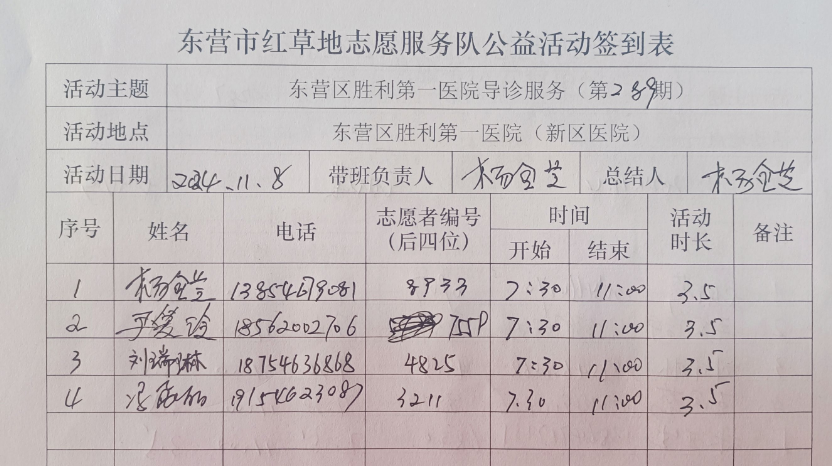 东营市红草地志愿服务队公益活动签到表
活动主题 东营区胜利第一医院导诊服务（第289期）
活动地点 东营区胜利第一医院（新区医院）
活动日期 2024.11.8 带班负责人 杨金芝 总结人 杨金芝
序号 姓名 电话 志愿者编号（后四位） 时间 开始 结束 活动时长 备注
1 杨金芝 13854679081 8933 7:30 11:00 3.5
2 18562002706 7:30 11:00 3.5
3 刘瑞林 18754636868 4825 7:30 11:00 3.5
4 19154623087 3211 7:30 11:00 3.5